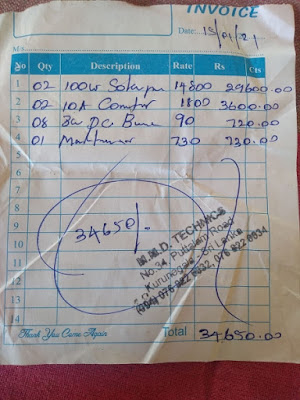 INVOICE
Date: 15/01/21
M
No Qty Description Rate Rs Cts
1 02 100W Solar 14800 29600.00
2 02 10A 1800 3600.00
3 08 3W DC 90 720.00
4 01 730 730.00
5
6
7
8
9 34650/-
10
11
12
13
14
M.M.D. TECHNICS
No.34, Puttalam Road
Kurunegala - Sri Lanka
Thank You Come Again Total 34650.00